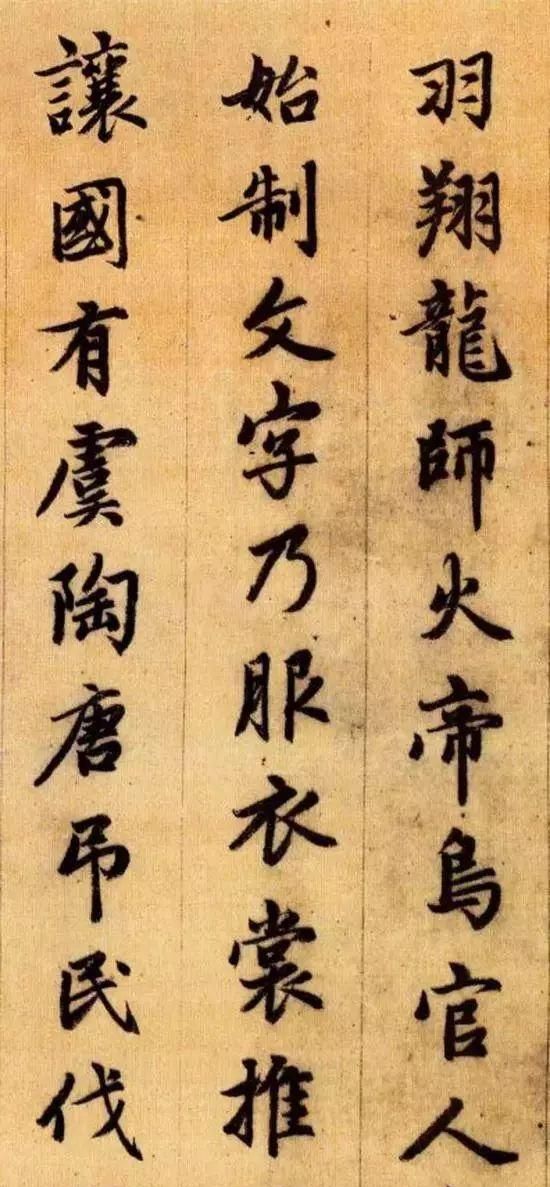 羽翔龍師火帝鳥官人
始制文字乃服衣裳推
讓國有虞陶唐吊民伐